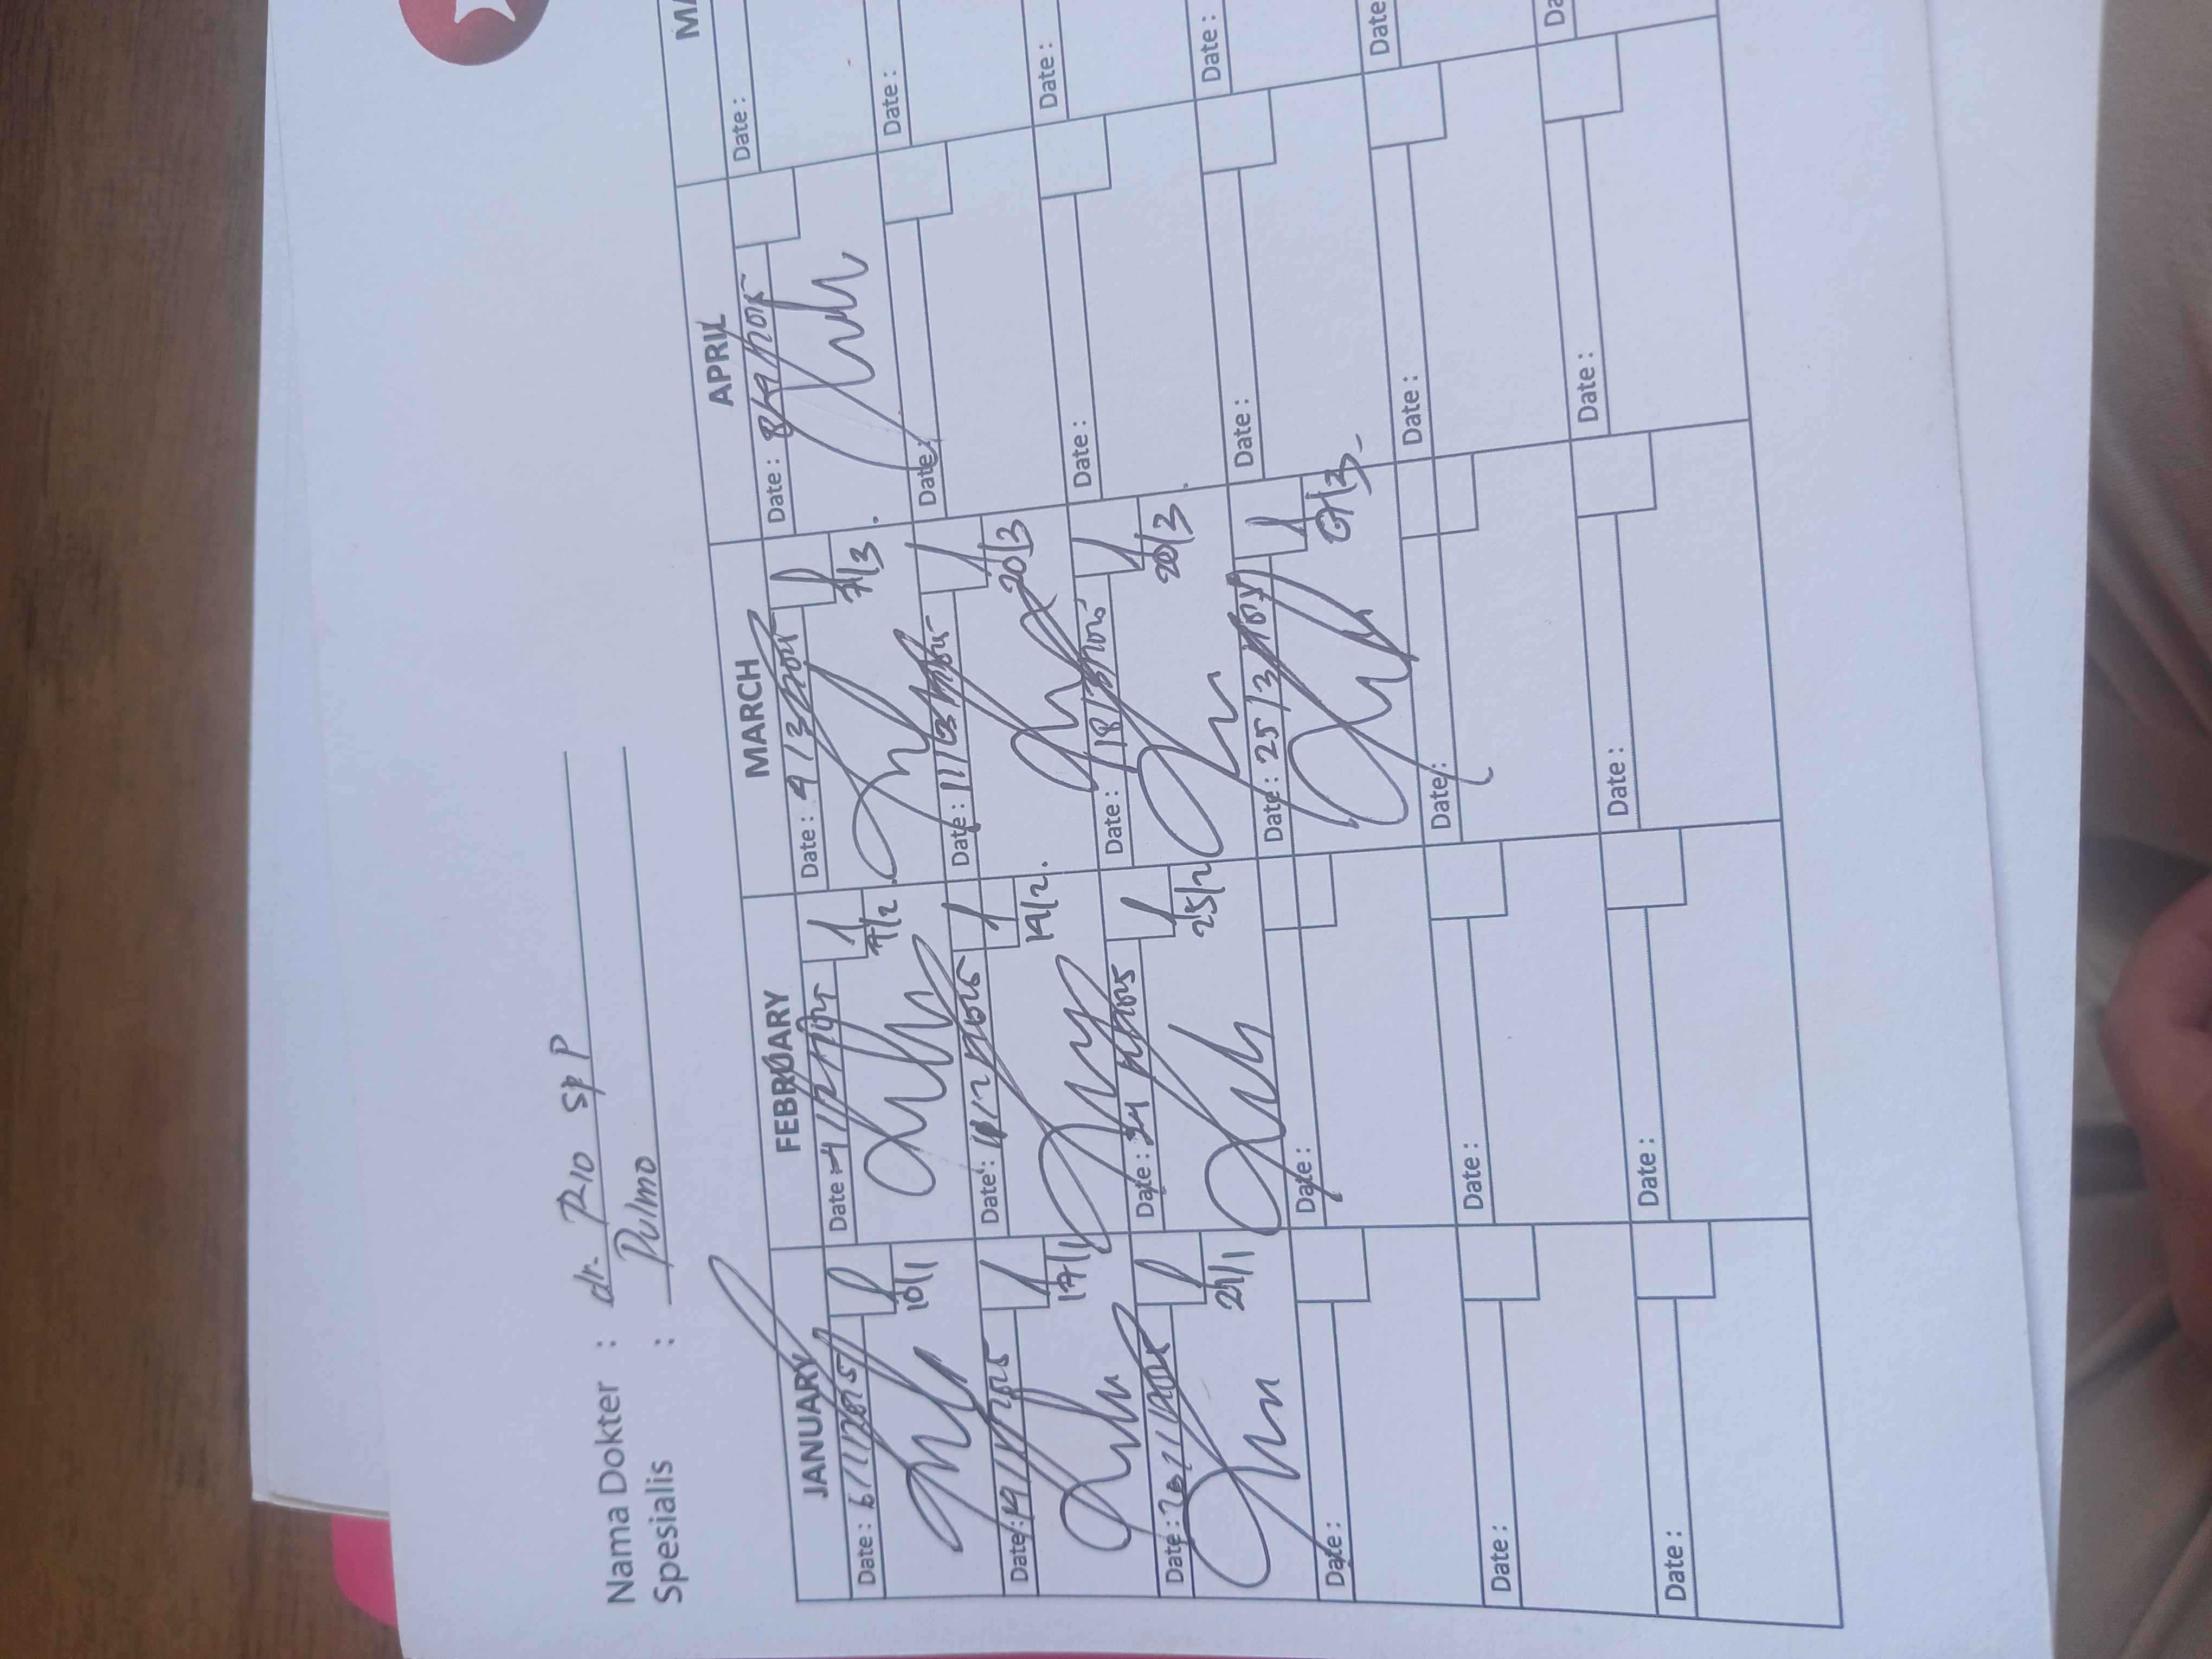 Nama Dokter : dr. Rio Sp P
Spesialis : Pulmo
JANUARY FEBRUARY MARCH APRIL MA
Date : 6/1/2025 Date : 4/2/2025 Date : 4/3/2025 Date : 8/4/2025 Date :
10/1 7/2 7/3
Date : 14/1/2025 Date : Date : 11/03/2025 Date : Date :
17/1 19/2 20/3
Date : 20/1/2025 Date : 24/2/2025 Date : 18/3/2025 Date : Date :
21/1 25/2 20/3
Date : Date : Date : 25/3/2025 Date : Date :
Date : Date : Date : Date : Date
Date : Date : Date : Date : Da